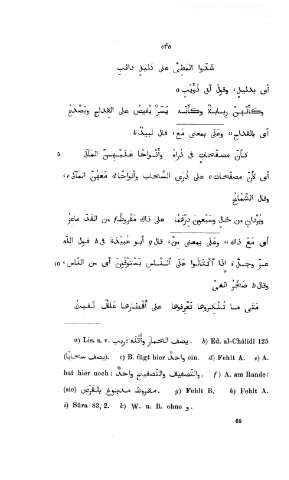 ٥٣٥
شَدُّوا المَطِىَّ على دَلِيلٍ دائِبٍ
أى بدليل، وقول أبى ذُؤَيْب a
وكأَنَّهُنَّ رِبابةٌ وكأَنَّهُ يَسَرٌ يُفِيضُ على القِداحِ ويَصْدَعُ
أى بالقداح، وعَلَى بمعنى مَعَ، قال لَبِيد b
كأَنَّ مُصَفَّحاتٍ فى ذُراهُ وأَنْواحًا عَلَيْهِنَّ المَآلِى ٥
أى كأنّ مصفّحات على ذُرى السَّحاب وأنواحًا مَعَهُنَّ المَآلِى،
وقال الشَّمَّاخ
وبُرْدانِ مِن خالٍ وسَبْعُونَ دِرْهَمًا على ذاكَ مَقْرُوظٌ من القَدّ ماعِزُ
أى مَعَ ذاك، وعَلَى بمعنى مِنْ، قال أبو عُبَيْدة فى قول الله
عزّ وجلّ إذَا ٱكْتَالُوا عَلَى ٱلنَّاسِ يَسْتَوْفُونَ أى من النّاس، ١٠
وقال صَخْرُ الغَىّ
مَتَى ما تُنْكِرُوها تَعْرِفُوها على أَقْطارِها عَلَقٌ نَفِيثُ
a) Lis. s. v. ربب: يصف الحمار وأُتُنَه. b) Ed. al-Châlidî 125
(يصف سحابا). c) B. fügt hier واحدها ein. d) Fehlt A. e) A.
hat hier noch: والتصفيف والتصفيح واحد. f) A. am Rande:
مقروظ مدبوغ بالقرض (sic). g) Fehlt B. h) Fehlt A.
i) Sûra 83, 2. k) W. u. B. ohne و.
69